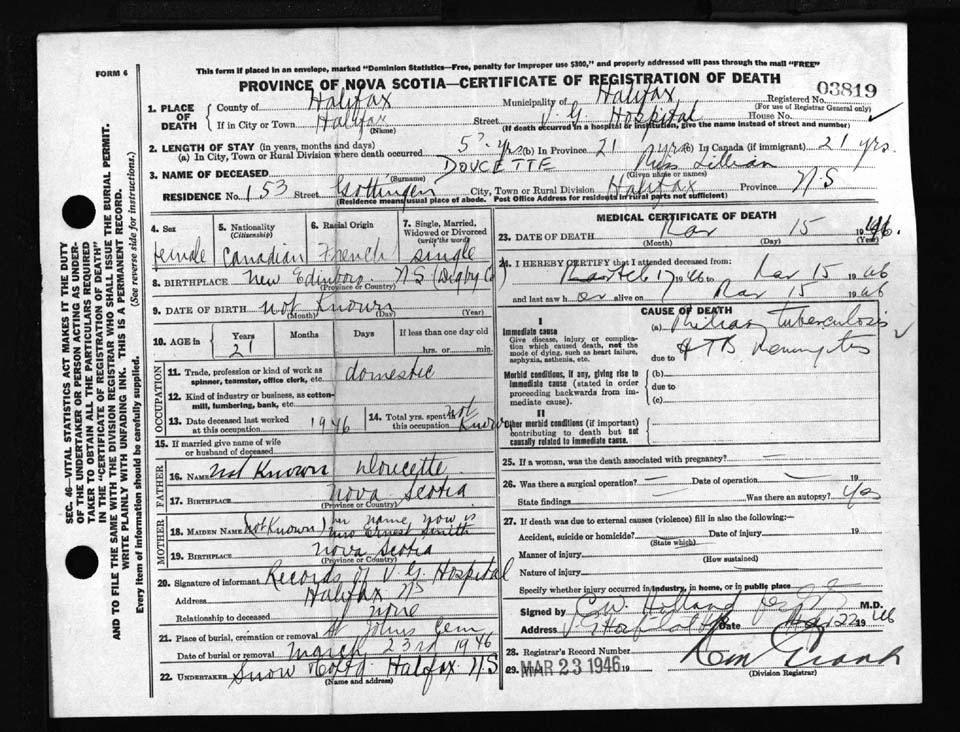 FORM 6
This form if placed in an envelope, marked "Dominion Statistics—Free, penalty for improper use $300," and properly addressed will pass through the mail "FREE"
PROVINCE OF NOVA SCOTIA—CERTIFICATE OF REGISTRATION OF DEATH
03819
1. PLACE OF DEATH County of Halifax Municipality of Halifax Registered No.
(For use of Registrar General only)
If in City or Town Halifax Street V. G. Hospital House No.
(Name) (If death occurred in a hospital or institution, give the name instead of street and number)
2. LENGTH OF STAY (in years, months and days)
(a) In City, Town or Rural Division where death occurred 5? yrs (b) In Province 21 yrs (c) In Canada (if immigrant) 21 yrs.
3. NAME OF DECEASED DOUCETTE Miss Lillian
(Surname) (Given name or names)
RESIDENCE No. 153 Street Gottingen City, Town or Rural Division Halifax Province N.S
(Residence means usual place of abode. Post Office Address for residents in rural parts not sufficient)
4. Sex 5. Nationality (Citizenship) 6. Racial Origin 7. Single, Married, Widowed or Divorced (write the word)
female Canadian French single
8. BIRTHPLACE New Edinboro N S (Digby Co)
(Province or Country)
9. DATE OF BIRTH not Known
(Month) (Day) (Year)
10. AGE in Years Months Days If less than one day old
21 hrs. or min.
OCCUPATION
11. Trade, profession or kind of work as spinner, teamster, office clerk, etc. domestic
12. Kind of industry or business, as cotton-mill, lumbering, bank, etc.
13. Date deceased last worked at this occupation 1946
14. Total yrs. spent in this occupation not Known
15. If married give name of wife or husband of deceased
FATHER
16. NAME not Known Doucette
17. BIRTHPLACE Nova Scotia
(Province or Country)
MOTHER
18. MAIDEN NAME (not Known) her name now is Mrs Ernest Smith
19. BIRTHPLACE Nova Scotia
(Province or Country)
20. Signature of informant Records of V. G. Hospital
Address Halifax NS
Relationship to deceased none
21. Place of burial, cremation or removal St Johns Cem
Date of burial or removal March 23rd 1946
22. UNDERTAKER Snow Co Ltd. Halifax N.S
(Name and address)
MEDICAL CERTIFICATE OF DEATH
23. DATE OF DEATH Mar 15 1946.
(Month) (Day) (Year)
24. I HEREBY CERTIFY that I attended deceased from:
Feb 17 1946 to Mar 15 1946
and last saw her alive on Mar 15 1946
CAUSE OF DEATH
I
Immediate cause
Give disease, injury or complication which caused death, not the mode of dying, such as heart failure, asphyxia, asthenia, etc.
(a) Miliary tuberculosis
due to TB Meningitis
Morbid conditions, if any, giving rise to immediate cause (stated in order proceeding backwards from immediate cause).
(b)
due to
(c)
II
Other morbid conditions (if important) contributing to death but not causally related to immediate cause.
25. If a woman, was the death associated with pregnancy? —
26. Was there a surgical operation? — Date of operation —
State findings Was there an autopsy? Yes
27. If death was due to external causes (violence) fill in also the following:—
Accident, suicide or homicide? Date of injury 19
(State which)
Manner of injury
(How sustained)
Nature of injury
Specify whether injury occurred in industry, in home, or in public place
Signed by M.D.
Address Date Mar 22 1946
28. Registrar's Record Number
29. MAR 23 1946 19
(Division Registrar)
SEC. 46—VITAL STATISTICS ACT MAKES IT THE DUTY
OF THE UNDERTAKER OR PERSON ACTING AS UNDER-
TAKER TO OBTAIN ALL THE PARTICULARS REQUIRED
IN THE "CERTIFICATE OF REGISTRATION OF DEATH"
AND TO FILE THE SAME WITH THE DIVISION REGISTRAR WHO SHALL ISSUE THE BURIAL PERMIT.
WRITE PLAINLY WITH UNFADING INK. THIS IS A PERMANENT RECORD.
Every item of information should be carefully supplied. (See reverse side for instructions.)